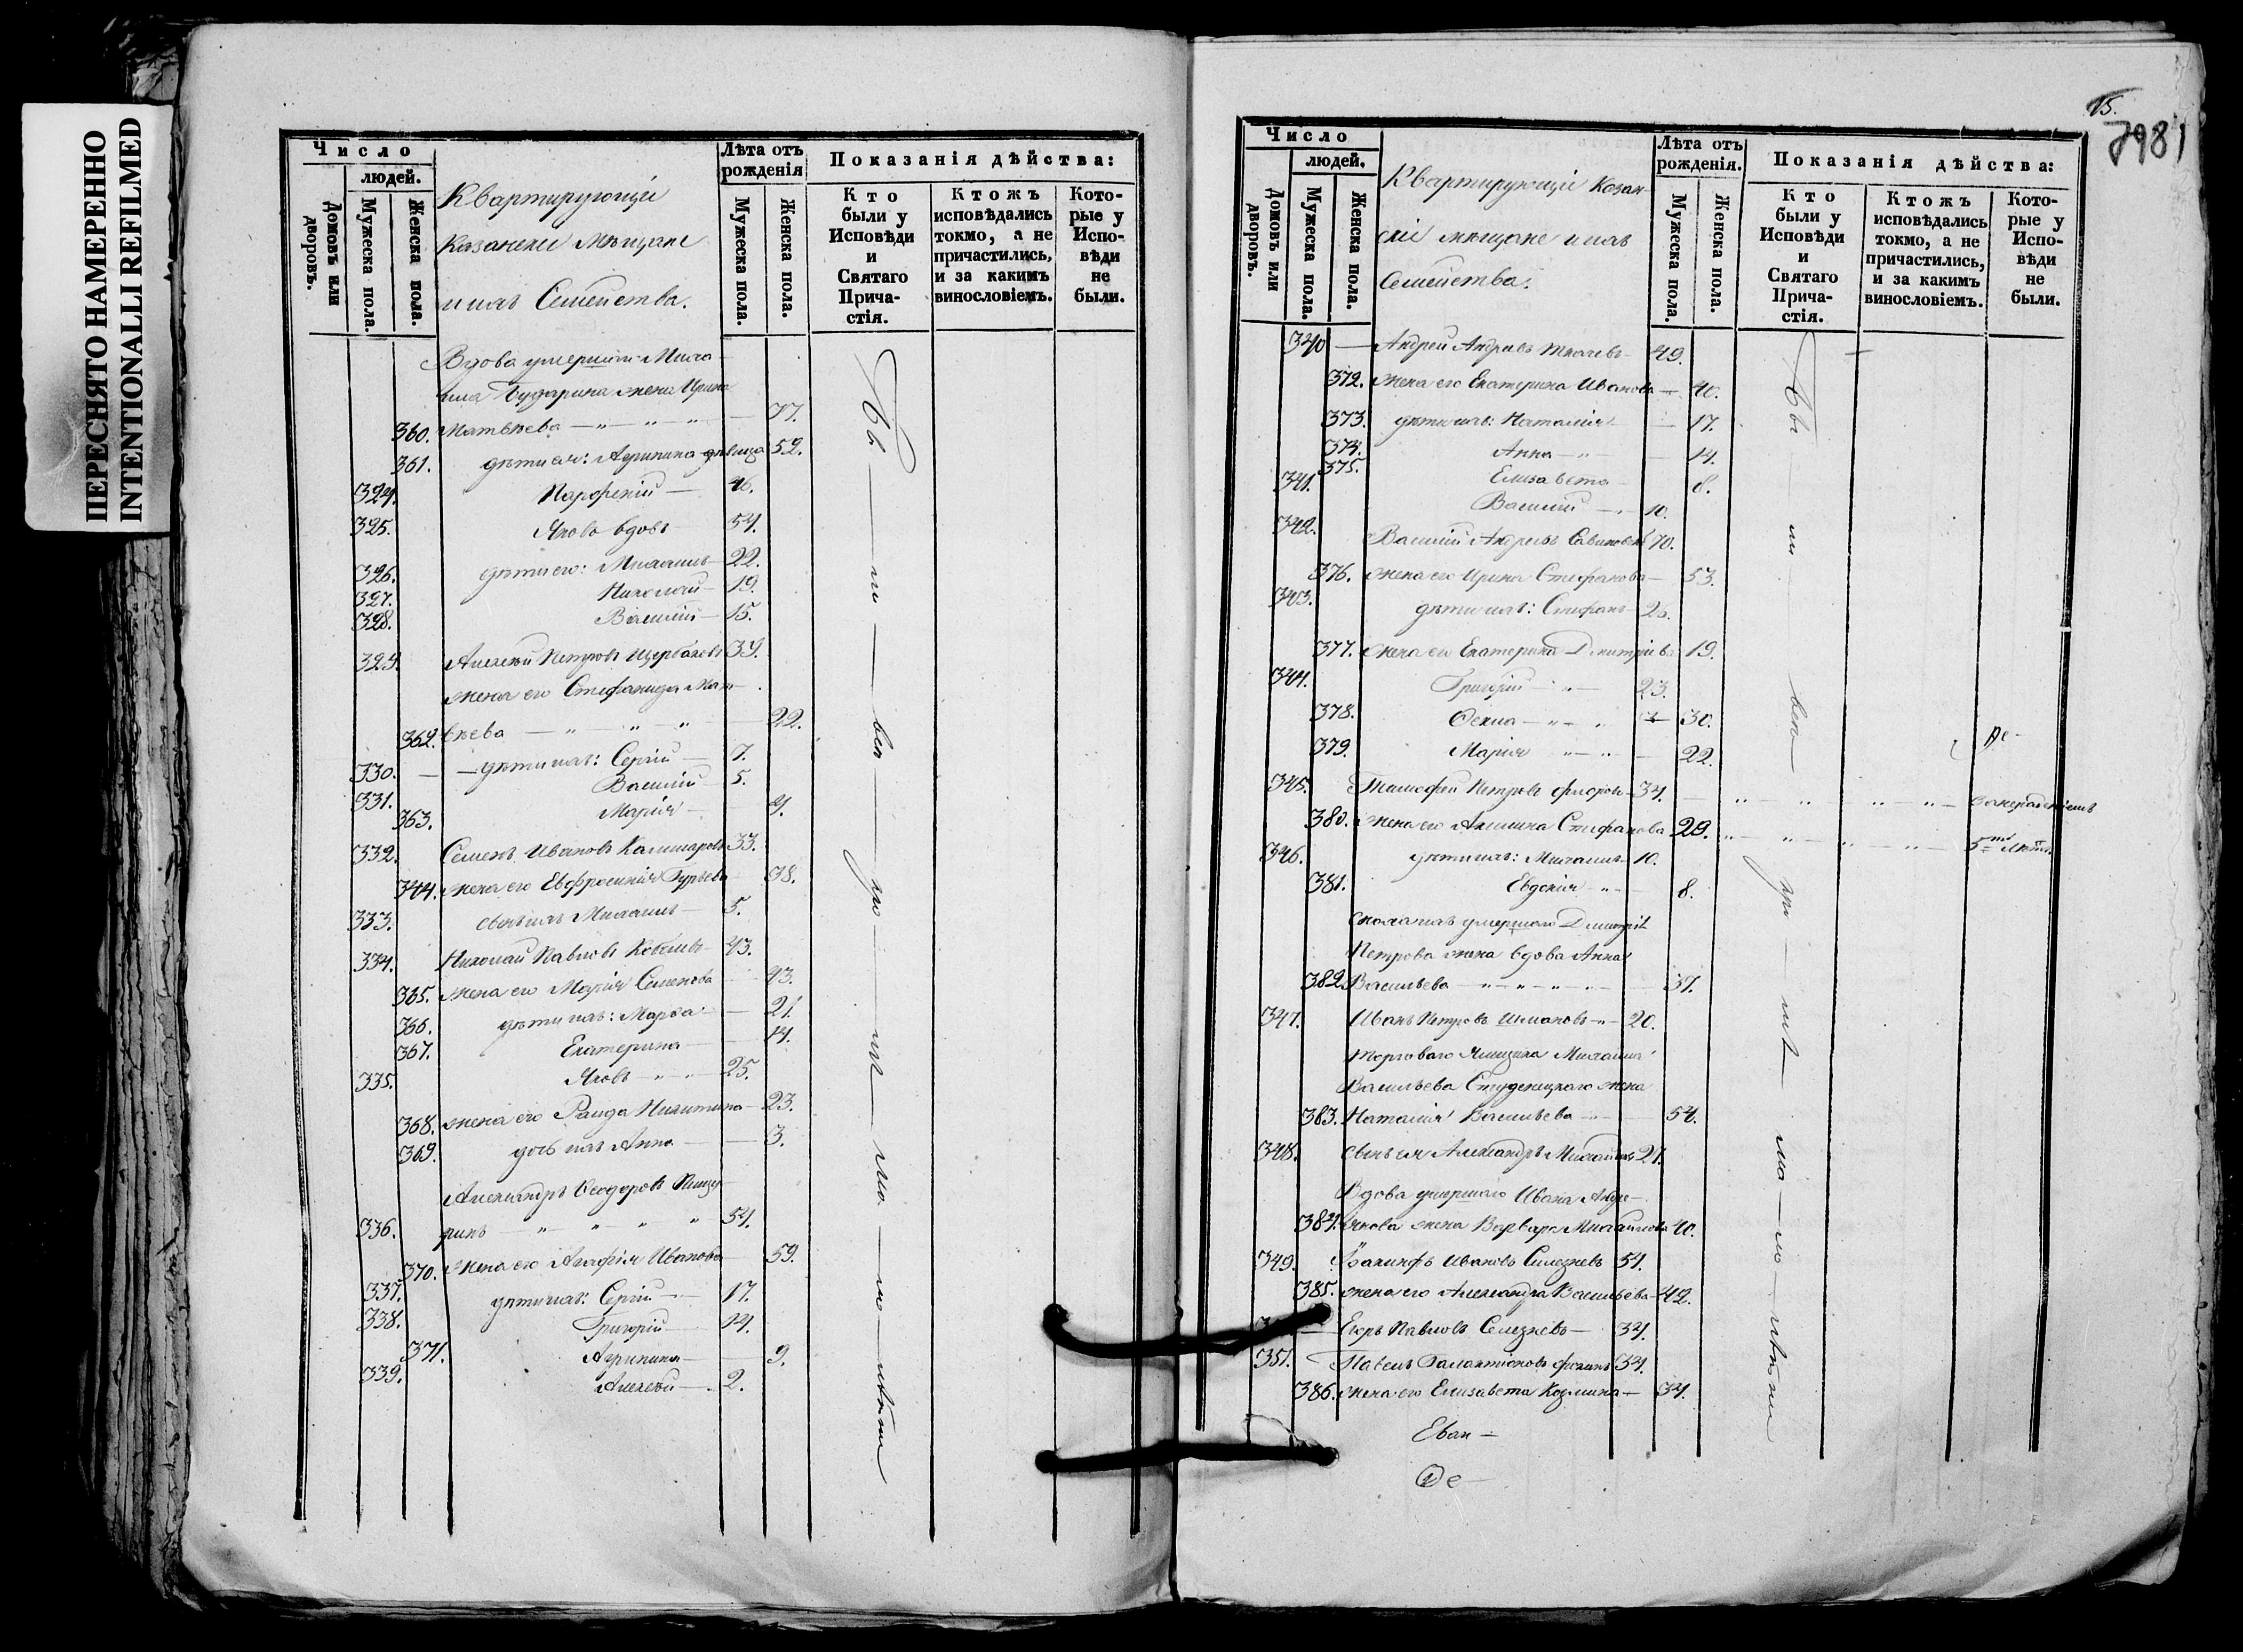 ПЕРЕСНЯТО НАМЕРЕННО
INTENTIONALLI REFILMED
Число
людей.
Домовъ или дворовъ.
Мужеска пола.
Женска пола.
Квартирующіе
Казанскіе Мѣщане
и ихъ Семейства.
Лѣта отъ рожденія
Мужеска пола.
Женска пола.
Показанія дѣйства:
Кто были у Исповѣди и Святаго Прича-стія.
Ктожъ исповѣдались токмо, а не причастились, и за какимъ винословіемъ.
Кото-рые у Испо-вѣди не были.
Вдова умершаго Миха-
ила Бударина жена Ирина
360. Матвѣева — 77.
361. дѣти ея: Агрипина дѣвица 52.
324. Парфеній — 46.
325. Яковъ вдовъ 54.
326. дѣти его: Михаилъ — 22.
327. Николай — 19.
328. Василій — 15.
329. Алексѣй Петровъ Щербаковъ 39.
жена его Стефанида Мат-
362. вѣева — 22.
330. — дѣти ихъ: Сергій — 7.
331. Василій — 5.
363. Марія — 4.
332. Семенъ Ивановъ 33.
344. жена его Евфросинія Гурьева 38.
333. сынъ ихъ Михаилъ — 5.
334. Николай Павловъ 43.
365. жена его Марія Семенова 43.
366. дѣти ихъ: Марѳа — 21.
367. Екатерина — 14.
335. Яковъ — 25.
368. жена его Раида Никитина — 23.
369. дочь ихъ Анна — 3.
Александръ Ѳеодоровъ
336. ринъ — 54.
370. жена его Агафія Иванова 59.
337. дѣти ихъ: Сергій — 17.
338. Григорій 14.
371. Агрипина — 9.
339. Алексѣй — 2.
15.
7981
Число
людей.
Домовъ или дворовъ.
Мужеска пола.
Женска пола.
Квартирующіе Казан-
скіе мѣщане и ихъ
Семейства.
Лѣта отъ рожденія.
Мужеска пола.
Женска пола.
Показанія дѣйства:
Кто были у Исповѣди и Святаго Прича-стія.
Ктожъ исповѣдались токмо, а не причастились, и за какимъ винословіемъ.
Кото-рые у Испо-вѣди не были.
340 — Андрей Андреевъ Ткачевъ — 49.
372. жена его Екатерина Иванова — 40.
373. дѣти ихъ: Наталия — 17.
374. Анна — 14.
375. Елизавета 8.
341. Василій — 10.
342. Василій Андреевъ 70.
376. жена его Ирина Стефанова — 53.
343. дѣти ихъ: Стефанъ 25.
377. жена его Екатерина Димитріева 19.
344. Григорій — 23.
378. Ѳекла — 30.
379. Марія — 22.
345. Тимофей Петровъ 34. —
380. жена его Акилина Стефанова 29.
346. дѣти ихъ: Михаилъ 10.
381. Евдокія 8.
сноха ихъ умершаго Димитрія
Петрова жена вдова Анна
382. Васильева — 37.
347. Иванъ Петровъ 20.
Торговаго Михаила
Васильева Студеницкаго жена
383. Наталія Васильева — 54.
348. сынъ ея Александръ Михайловъ 21.
Вдова умершаго Ивана Андре-
384. жена Варвара Михайлова 40.
349. Іакинфъ Ивановъ Селезневъ 54.
385. жена его Александра Васильева — 42.
Егоръ Павловъ Селезневъ — 34.
351. Павелъ Галактіоновъ 34.
386. жена его Елизавета Козмина — 34.